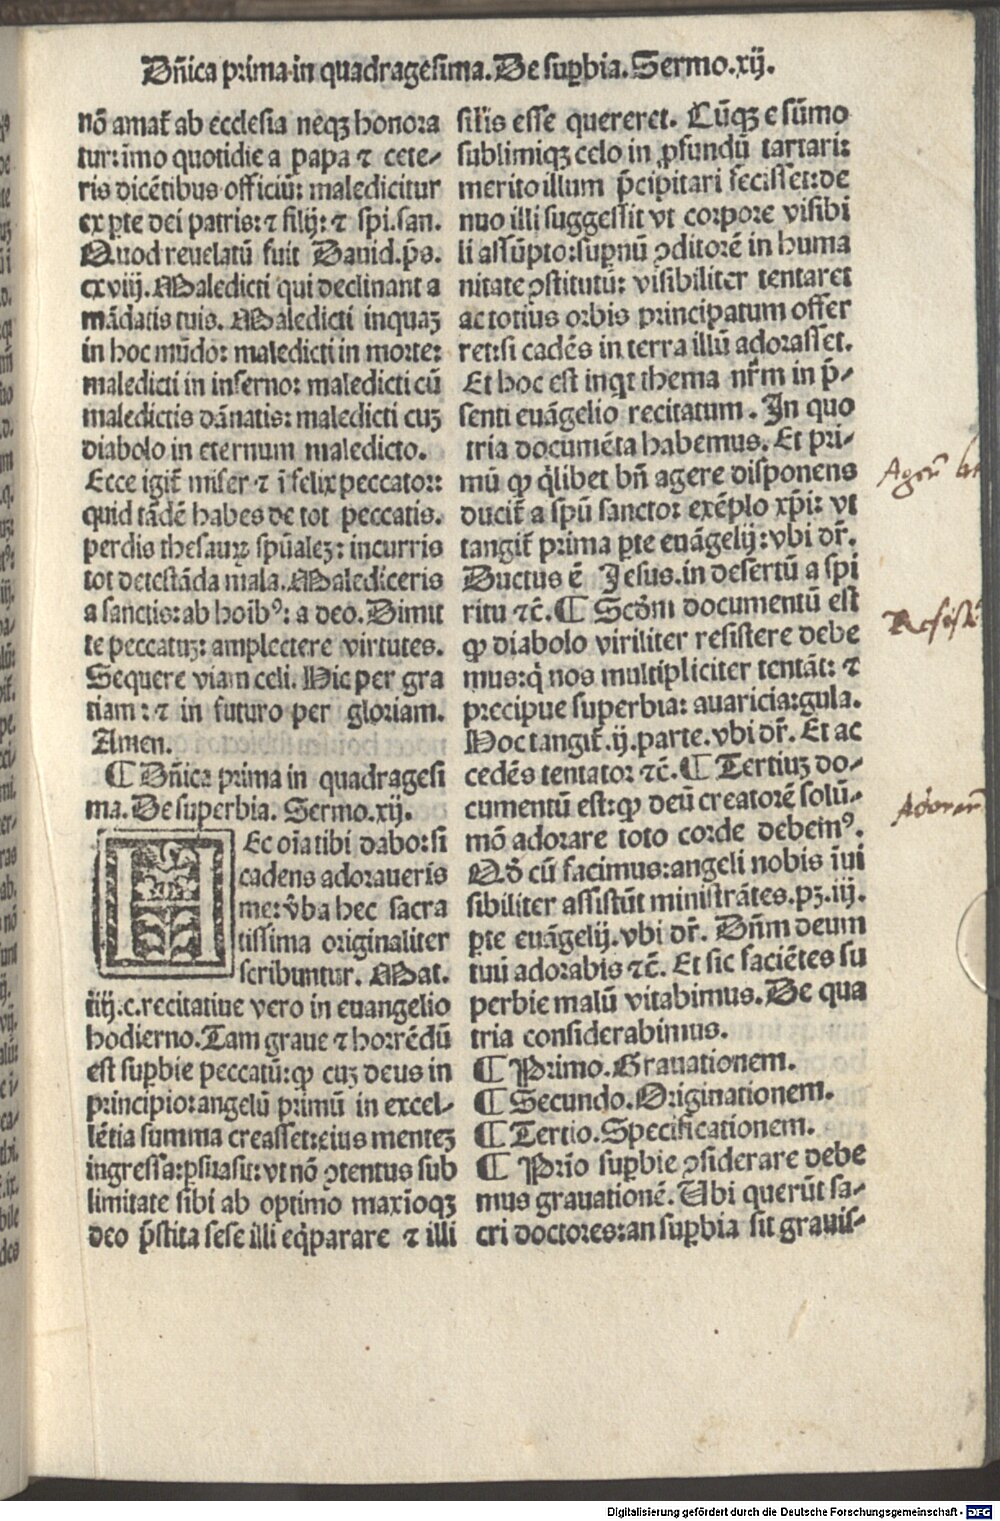 Dñica prima in quadragesima. De sup̱bia. Sermo. xij.
nõ amat᷑ ab ecclesia neqꝫ honora
tur: imo quotidie a papa ⁊ cete-
ris dicẽtibus officiũ: maledicitur
ex p̱te dei patris: ⁊ filij: ⁊ sp̃i. san.
Quod reuelatũ fuit Dauid. p̃s.
cxviij. Maledicti qui declinant a
mãdatis tuis. Maledicti inquaꝫ
in hoc mũdo: maledicti in morte:
maledicti in inferno: maledicti cũ
maledictis dãnatis: maledicti cuꝫ
diabolo in eternum maledicto.
Ecce igit᷑ miser ⁊ ĩfelix peccator:
quid tãdẽ habes de tot peccatis.
perdis thesauꝝ sp̃ualeꝫ: incurris
tot detestãda mala. Malediceris
a sanctis: ab hoĩbꝰ: a deo. Dimit
te peccatuꝫ: amplectere virtutes.
Sequere viam celi. Hic per gra
tiam: ⁊ in futuro per gloriam.
Amen.
¶ Dñica prima in quadragesi
ma. De superbia. Sermo. xij.
HEc oĩa tibi dabo: si
cadens adoraueris
me: v̾ba hec sacra
tissima originaliter
scribuntur. Mat.
iiij. c. recitatiue vero in euangelio
hodierno. Tam graue ⁊ horrẽdũ
est sup̱bie peccatũ: ꝙ cuꝫ deus in
principio: angelũ primũ in excel-
lẽtia summa creasset: eius menteꝫ
ingressa: p̱suasit: vt nõ ꝯtentus sub
limitate sibi ab optimo maxĩoqꝫ
deo p̃stita sese illi eq̇parare ⁊ illi
silis esse quereret. Cũqꝫ e sũmo
sublimiqꝫ celo in ꝓfundũ tartari:
merito illum p̃cipitari fecisset: de
nuo illi suggessit vt corpore visibi
li assũpto: sup̱nũ ꝯditorẽ in huma
nitate ꝯstitutũ: visibiliter tentaret
ac totius orbis principatum offer
ret: si cadẽs in terra illũ adorasset.
Et hoc est inq̇t thema nr̃m in p̃-
senti euãgelio recitatum. In quo
tria documẽta habemus. Et pri-
mũ ꝙ q̇libet bñ agere disponens
ducit᷑ a sp̃u sancto: exẽplo xp̃i: vt
tangit᷑ prima p̱te euãgelij: vbi dr̃.
Ductus ẽ Jesus. in desertũ a spi
ritu ⁊c̃. ¶ Scðm documentũ est
ꝙ diabolo viriliter resistere debe
mus: q̇ nos multipliciter tentãt: ⁊
precipue superbia: auaricia: gula.
Hoc tangit᷑. ij. parte. vbi dr̃. Et ac
cedẽs tentator ⁊c̃. ¶ Tertiuꝫ do-
cumentũ est: ꝙ deũ creatorẽ solũ-
mõ adorare toto corde debemꝰ.
Qð cũ facimus: angeli nobis ĩui
sibiliter assistũt ministrãtes. pꝫ. iij.
p̱te euãgelij. vbi dr̃. Dñm deum
tuũ adorabis ⁊c̃. Et sic faciẽtes su
perbie malũ vitabimus. De qua
tria considerabimus.
¶ Primo. Grauationem.
¶ Secundo. Originationem.
¶ Tertio. Specificationem.
¶ Prĩo sup̱bie ꝯsiderare debe
mus grauationẽ. Ubi querũt sa-
cri doctores: an sup̱bia sit grauis-
Digitalisierung gefördert durch die Deutsche Forschungsgemeinschaft - DFG